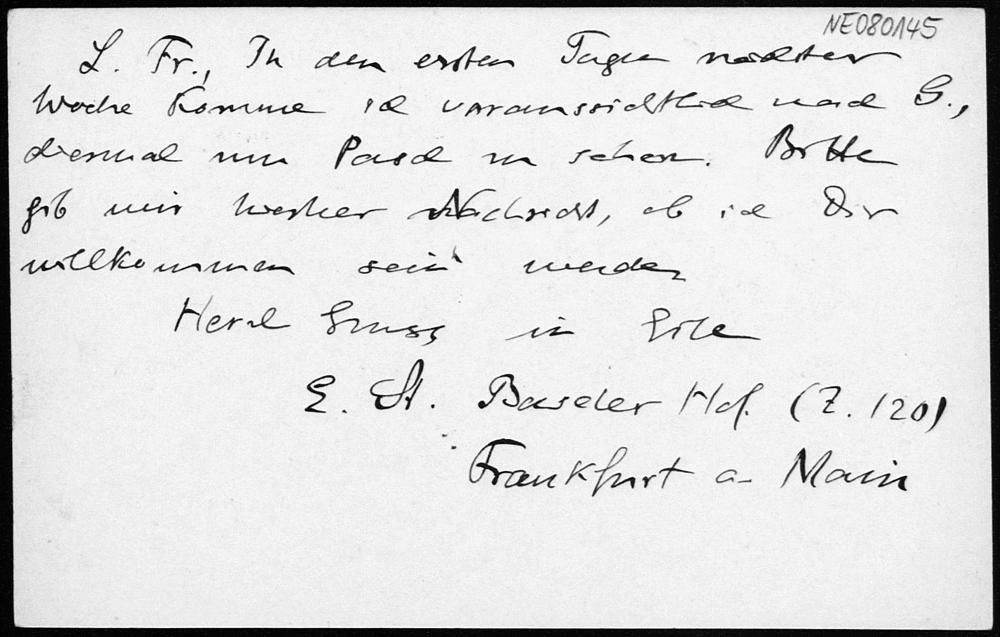 NE080145
L. Fr., In den ersten Tagen nächster
Woche komme ich voraussichtlich nach G.,
diesmal um Pasch zu sehen. Bitte
gib mir hierher Nachricht, ob ich Dir
willkommen sein werde.
Herzl Gruss in Eile
E. St. Baseler Hof. (Z. 120)
Frankfurt a. Main